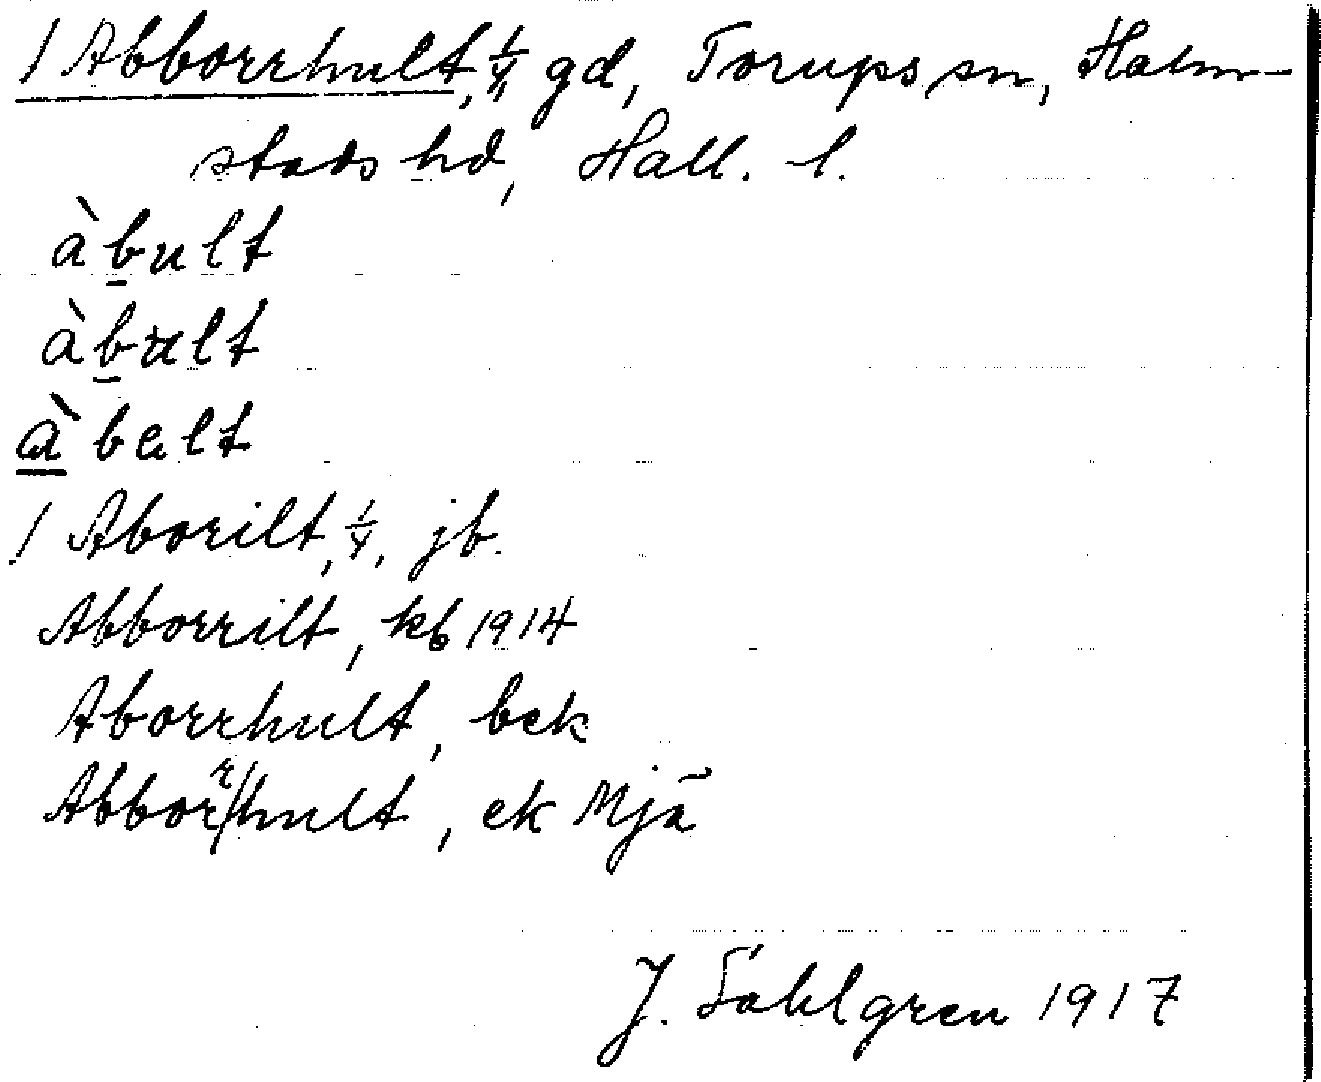 / Abborrhult, 1/4, gd, Torups sn, Halm-
stads hd, Hall. l.
àbult
àbult
àbelt
/ Aborilt, 1/4, jb.
Abborrilt, kb 1914
Aborrhult, bek
Abborr/hult, ek Mjä
J. Sahlgren 1917